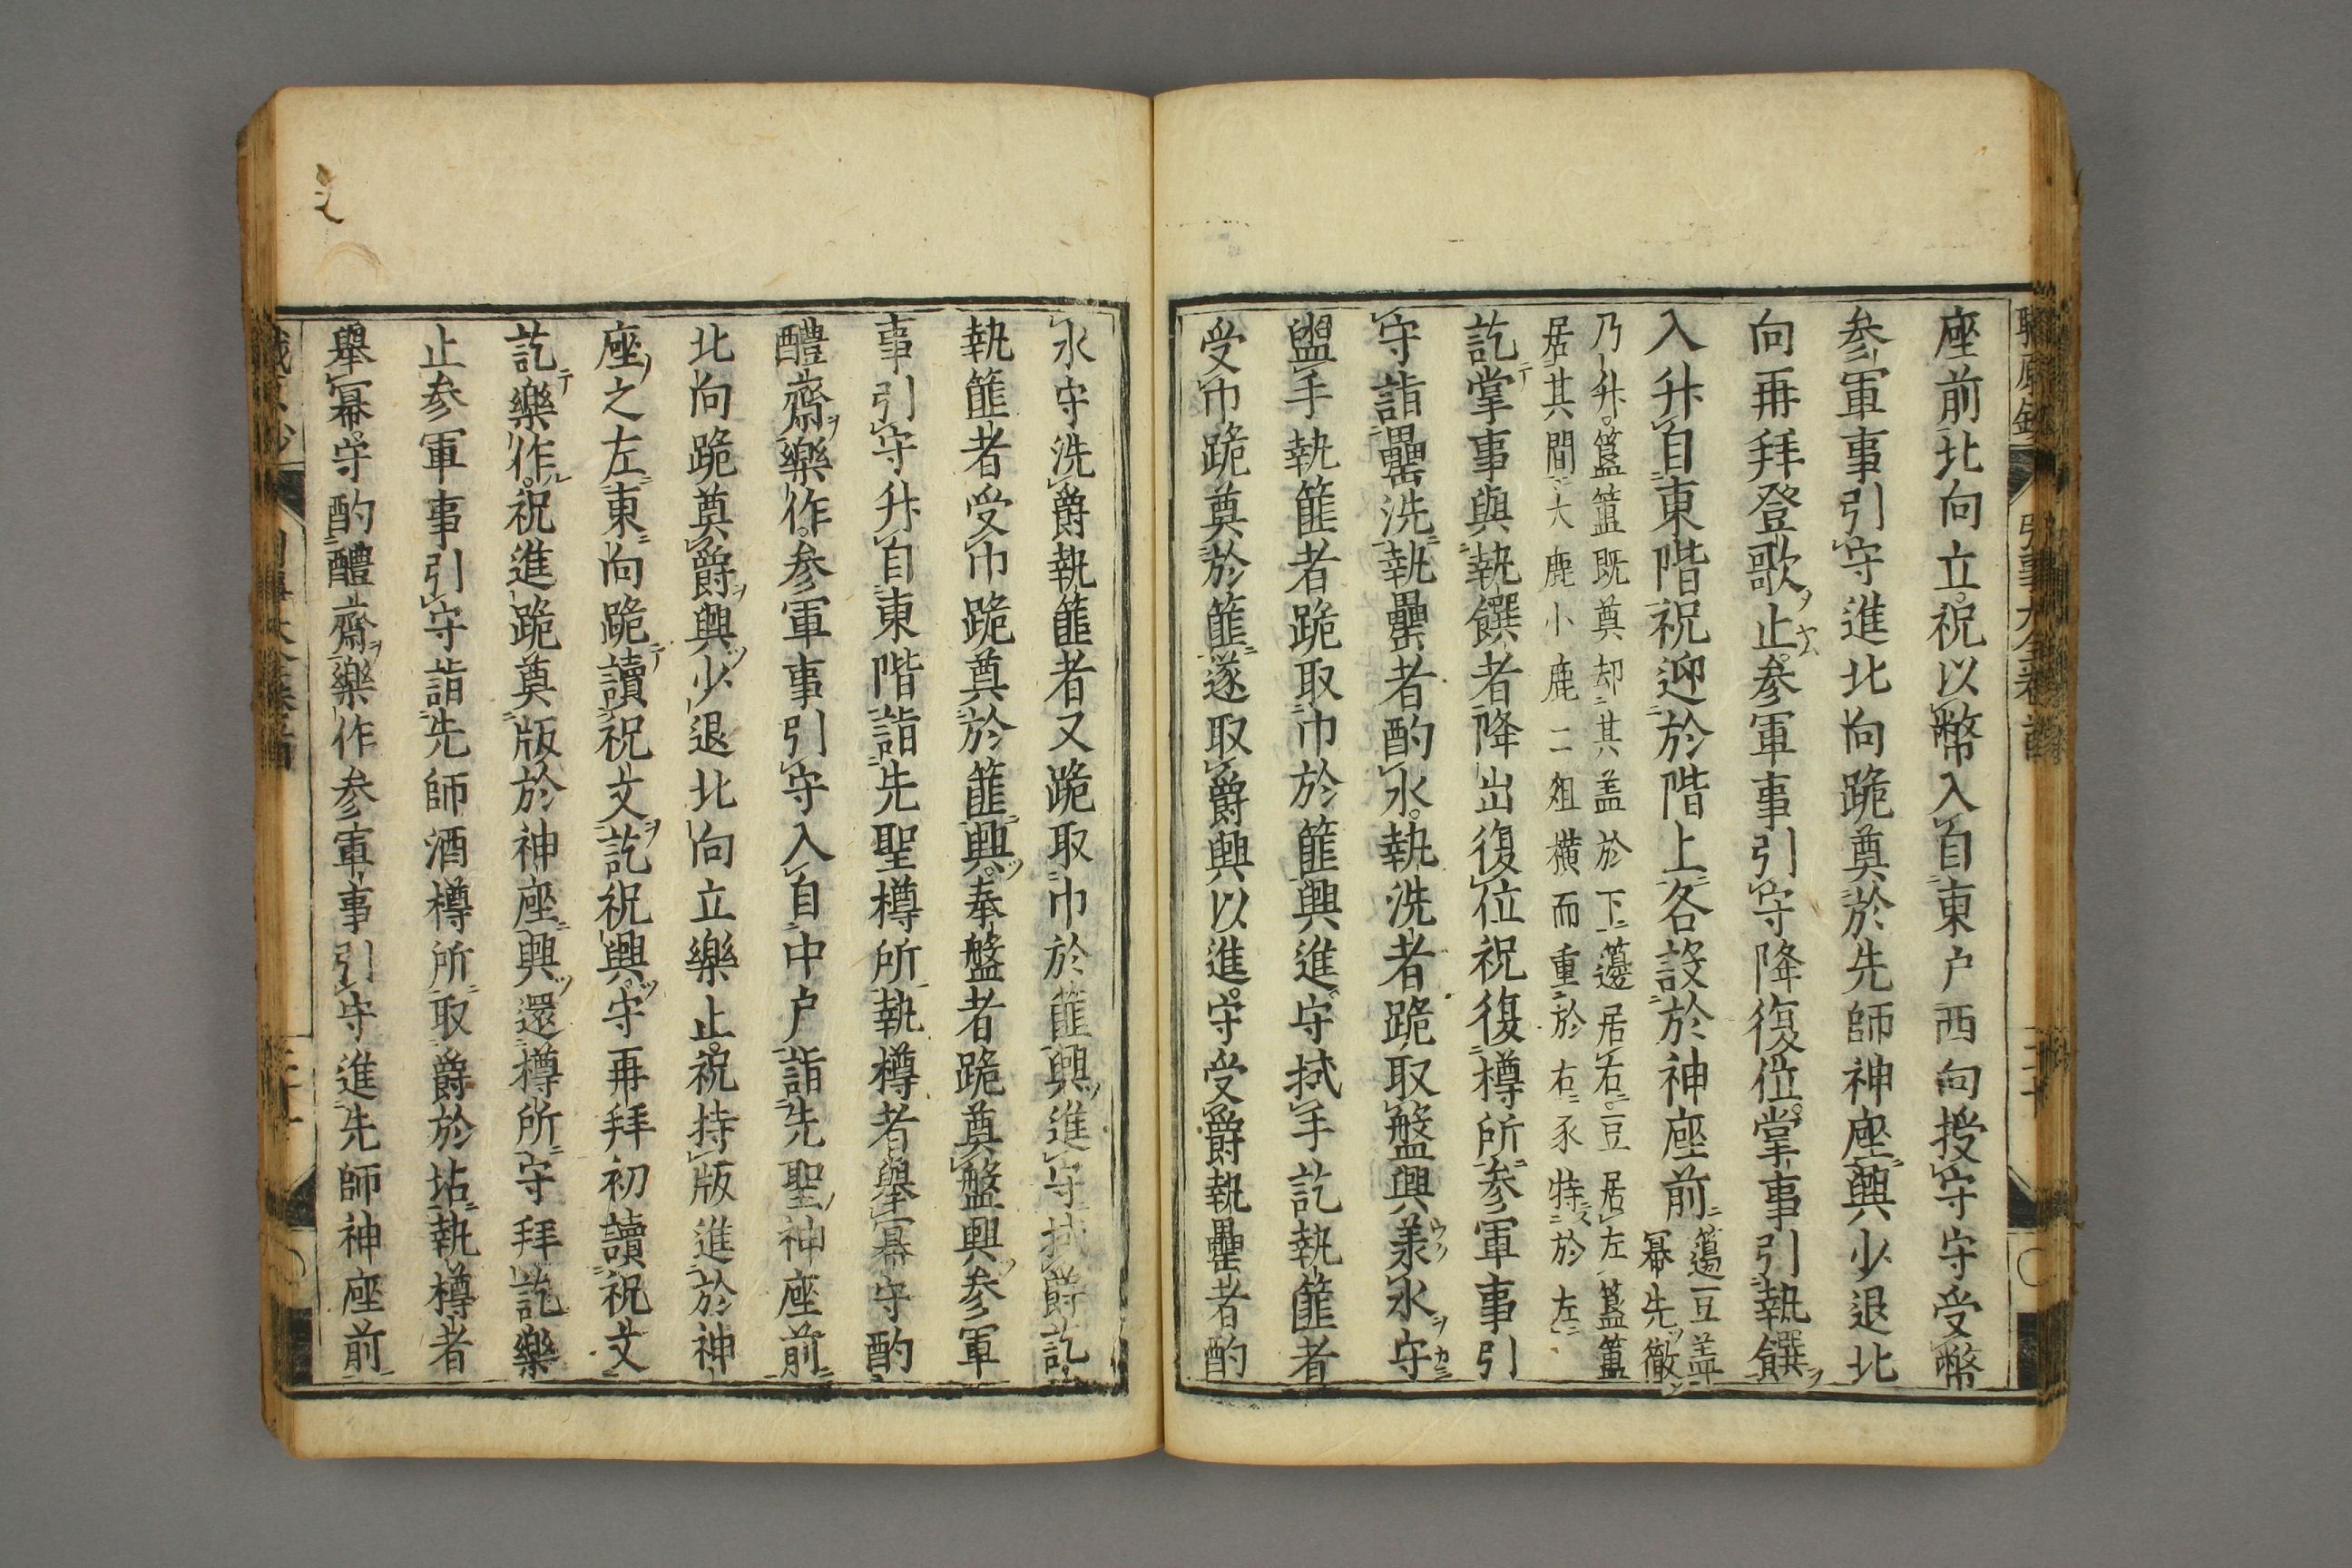 座前北向立祝以幣入自東户西向授守守受幣
参軍事引守進北向跪奠於先師神座興少退北
向再拜登歌止参軍事引守降復位掌事引執饌
入升自東階祝迎於階上各設於神座前籩豆盖
冪先徹
乃升簠簋既奠却其盖於下籩居右豆居左簠簋
居其間大鹿小鹿二俎横而重於右豕特於左
訖掌事與執饌者降出復位祝復樽所参軍事引
守詣罍洗執罍者酌水執洗者跪取盤興羕水守
盥手執篚者跪取巾於篚興進守拭手訖執篚者
受巾跪奠於篚遂取爵興以進守受爵執罍者酌
水守洗爵執篚者又跪取巾於篚興進守拭爵訖
執篚者受巾跪奠於篚興奉盤者跪奠盤興参軍
事引守升自東階詣先聖樽所執樽者舉冪守酌
醴齋樂作参軍事引守入自中户詣先聖神座前
北向跪奠爵興少退北向立樂止祝持版進於神
座之左東向跪讀祝文訖祝興守再拜初讀祝文
訖樂作祝進跪奠版於神座興還樽所守拜訖樂
止参軍事引守詣先師酒樽所取爵於坫執樽者
舉冪守酌醴齋樂作参軍事引守進先師神座前